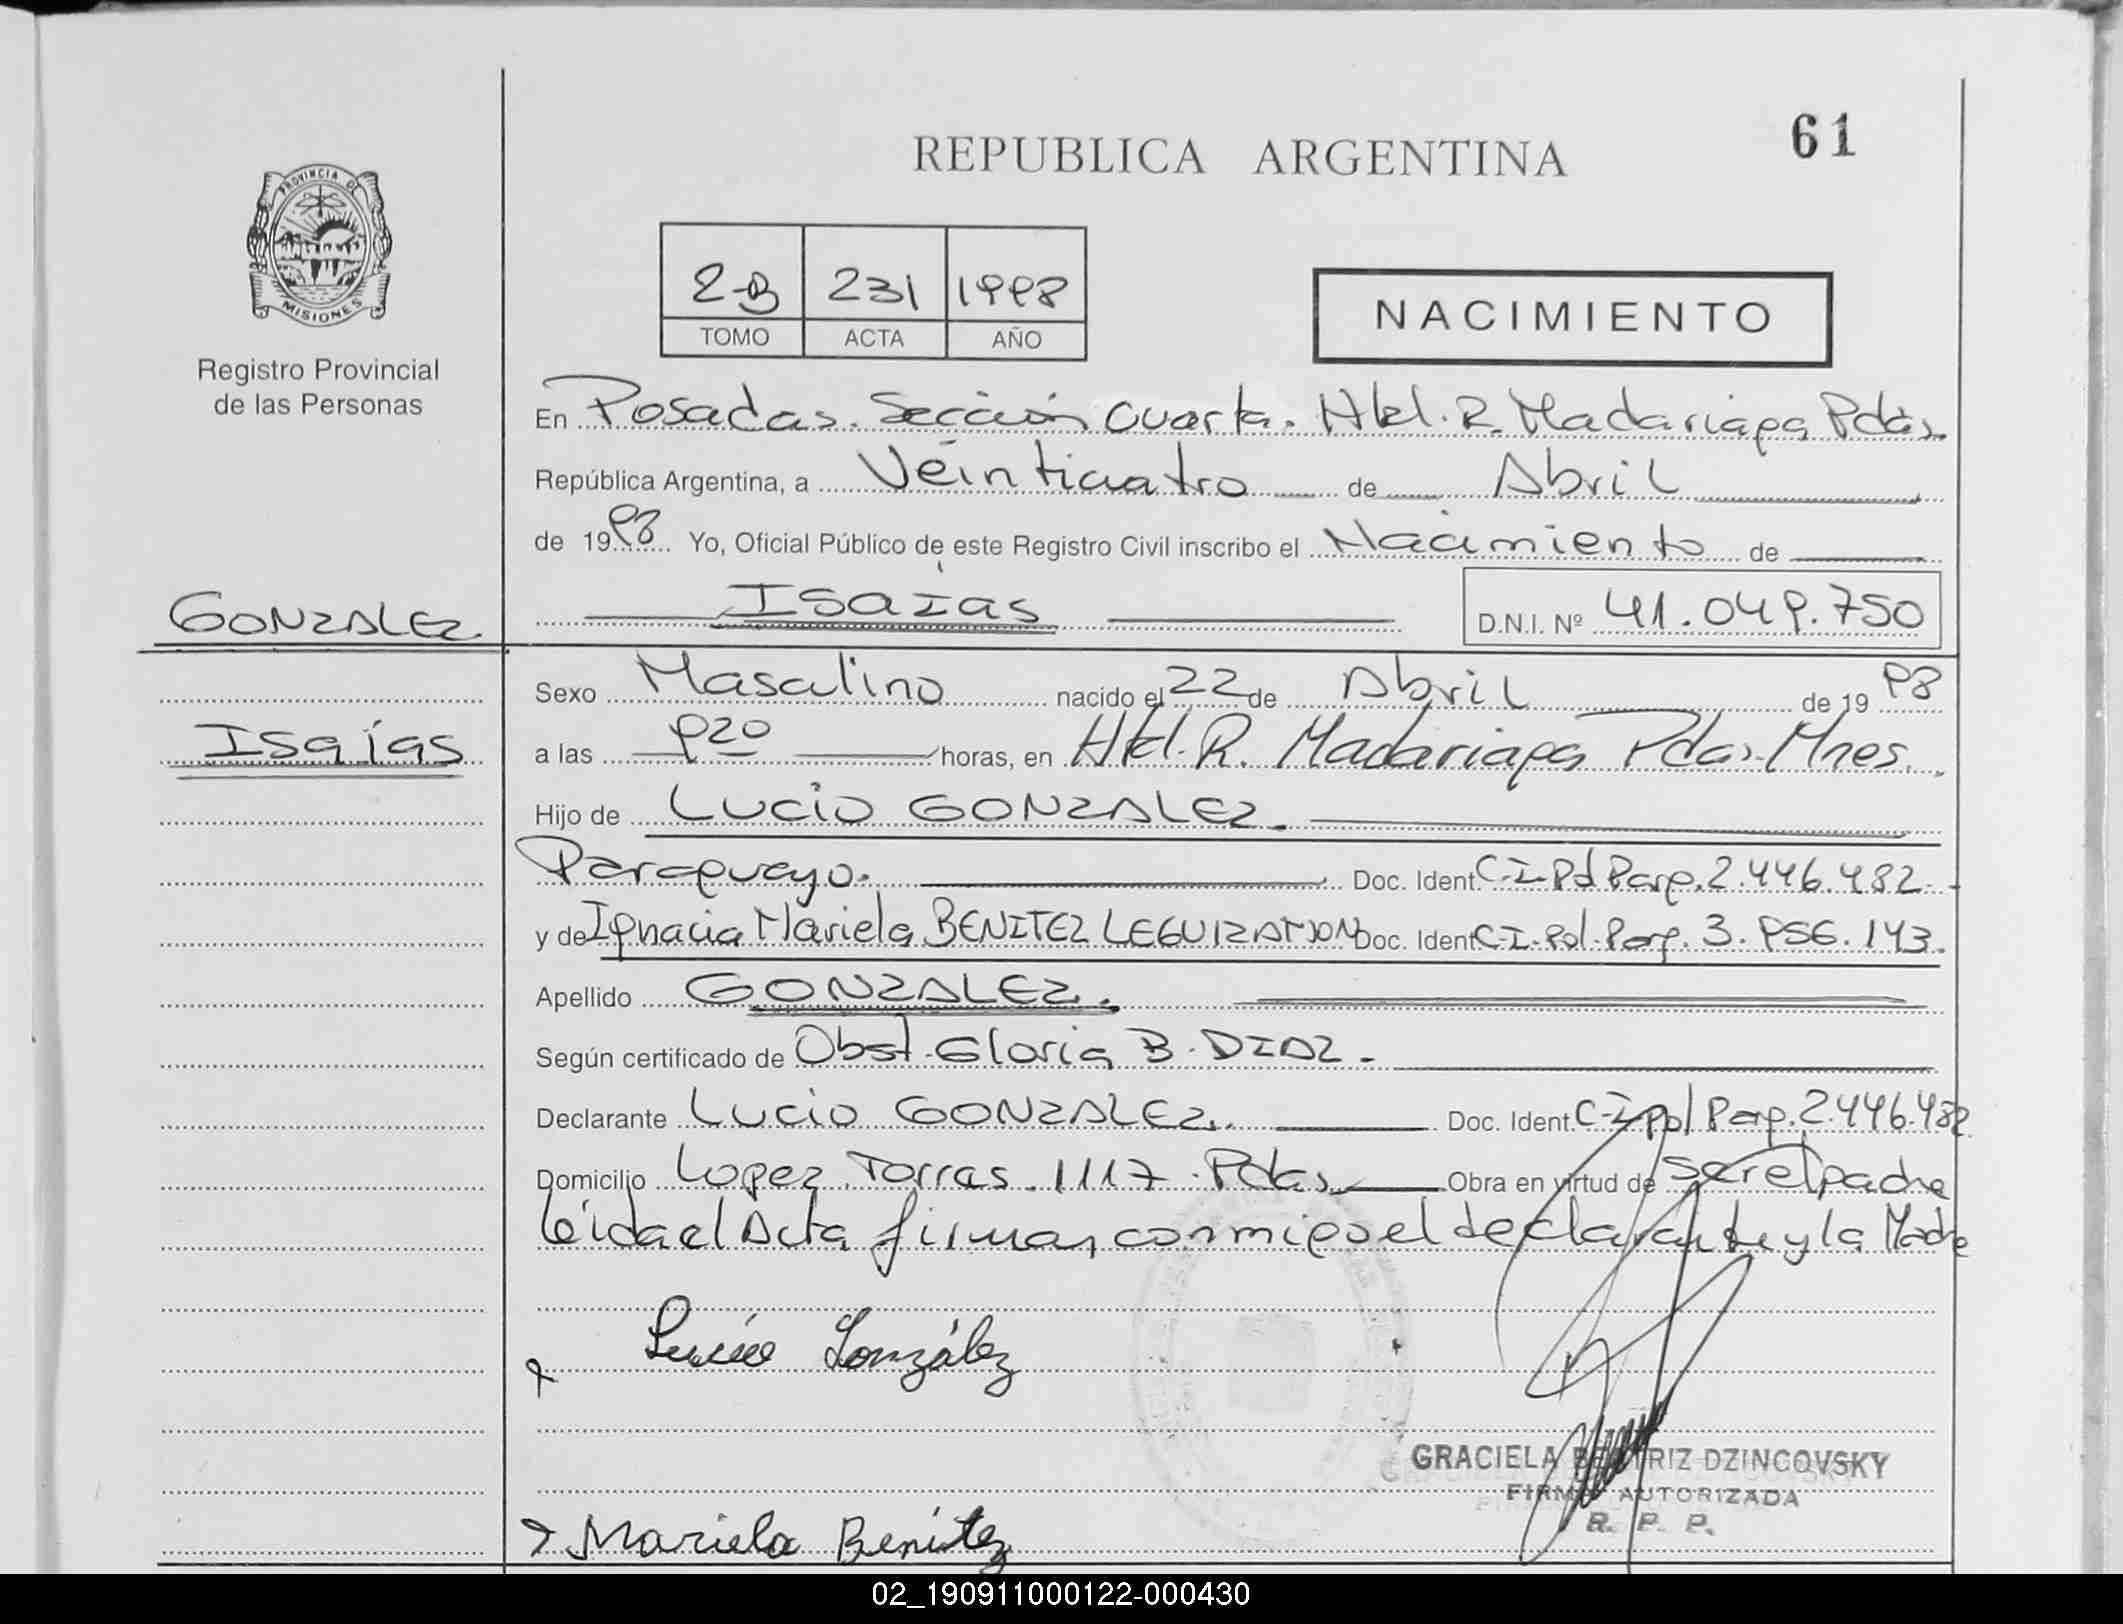 61
REPUBLICA ARGENTINA
PROVINCIA DE
MISIONES
Registro Provincial
de las Personas
2-B 231 1998
TOMO ACTA AÑO
NACIMIENTO
En Posadas. Sección Cuarta. Htal. R. Madariaga Pdas.
República Argentina, a Veinticuatro de Abril
de 1998 Yo, Oficial Público de este Registro Civil inscribo el Nacimiento de
GONZALEZ
Isaías
Isaías D.N.I. Nº 41.049.750
Sexo Masculino nacido el 22 de Abril de 19 98
a las 920 horas, en Htal. R. Madariaga Pdas. Mnes.
Hijo de Lucio GONZALEZ.
Paraguayo. Doc. Ident. C.I. Pol Parg. 2.446.482.
y de Ignacia Mariela BENITEZ LEGUIZAMON Doc. Ident. C.I. Pol. Parg. 3.956.143.
Apellido GONZALEZ.
Según certificado de Obst. Gloria B. DIAZ.
Declarante Lucio GONZALEZ. Doc. Ident. C.I. Pol Parg. 2.446.482
Domicilio Lopez Torres 1117. Pdas. Obra en virtud de ser el padre
leída el Acta firman conmigo el declarante y la Madre
Lucio González
GRACIELA BEATRIZ DZINCOVSKY
FIRMA AUTORIZADA
R. P. P.
Mariela Benítez
02_190911000122-000430